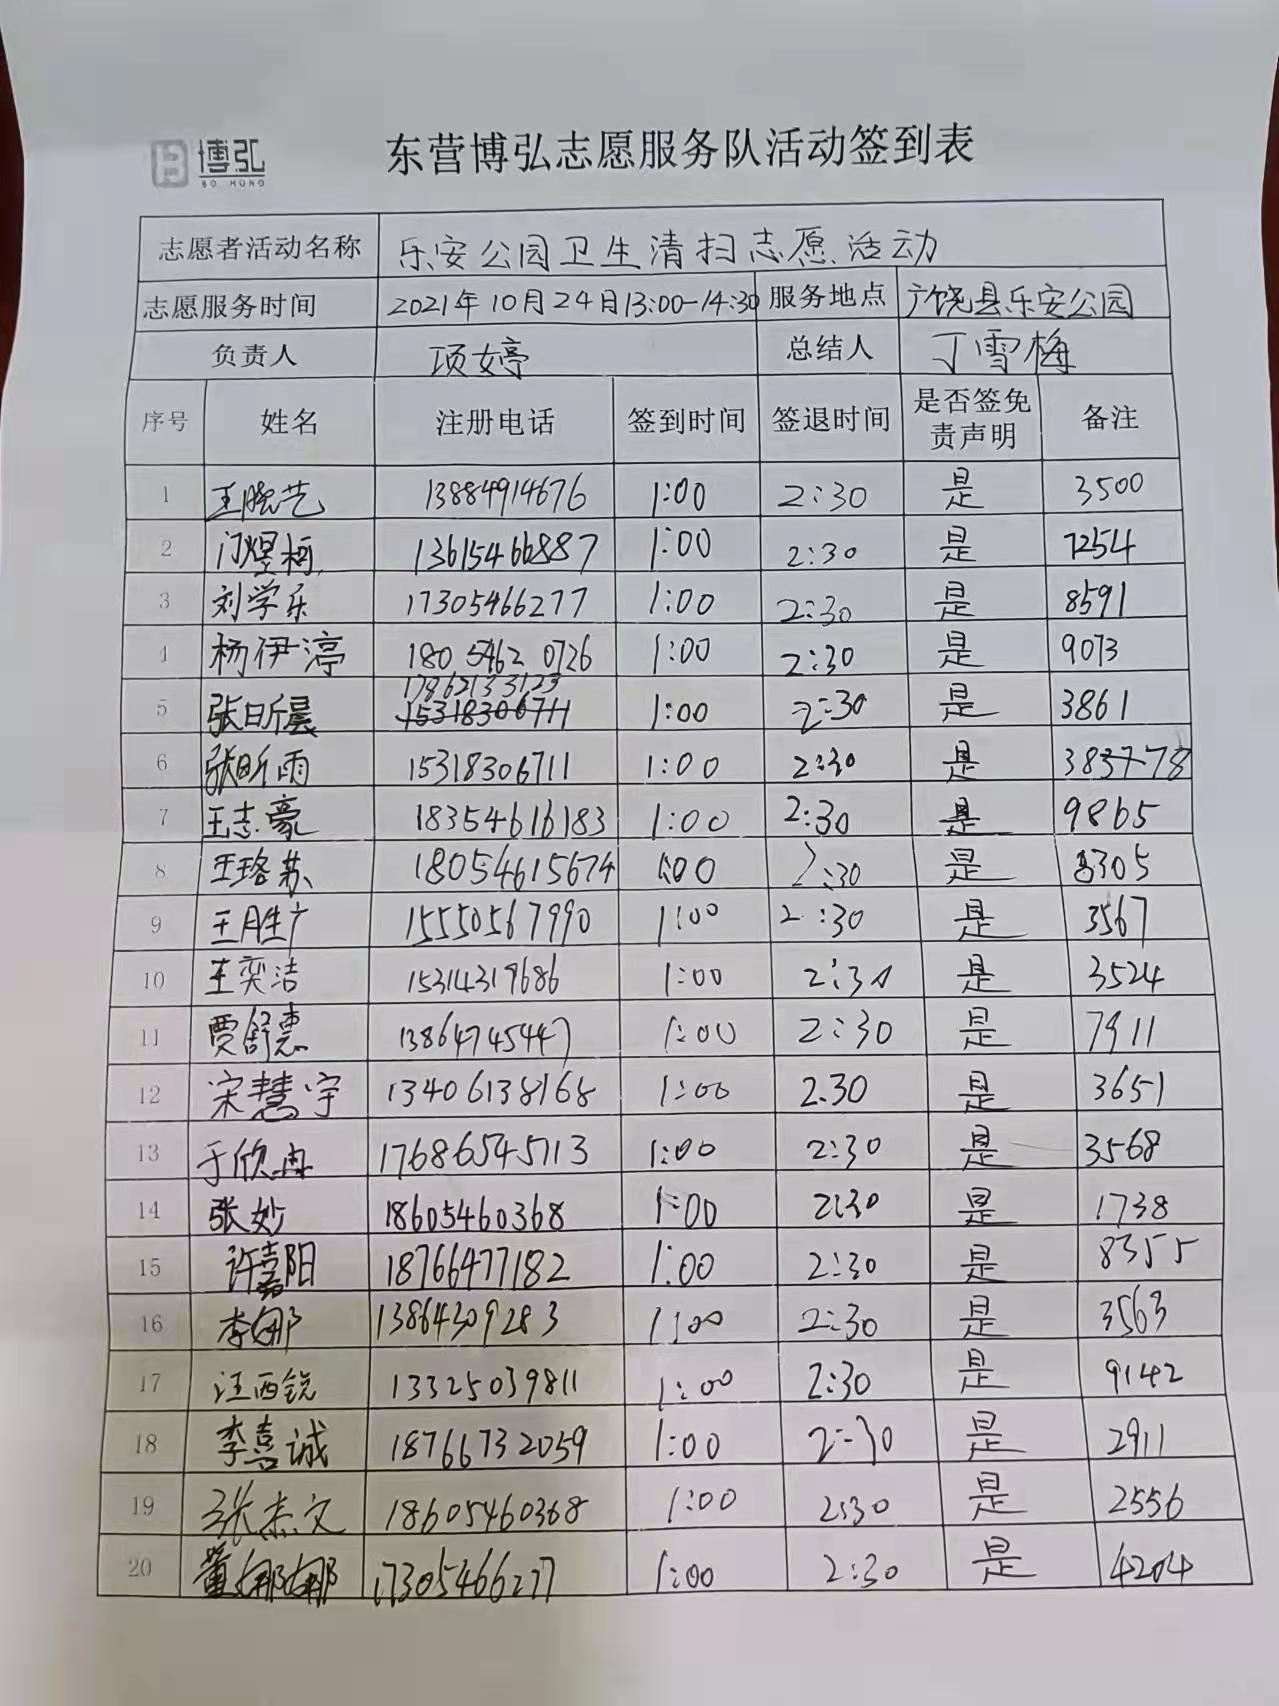 博弘
BO HONG
东营博弘志愿服务队活动签到表
志愿者活动名称 乐安公园卫生清扫志愿活动
志愿服务时间 2021年10月24日13:00-14:30 服务地点 广饶县乐安公园
负责人 项婷 总结人 丁雪梅
序号 姓名 注册电话 签到时间 签退时间 是否签免责声明 备注
1 王晓艺 13884914676 1:00 2:30 是 3500
2 门煜柯 13615466887 1:00 2:30 是 7254
3 刘学乐 17305466277 1:00 2:30 是 8591
4 杨伊渟 180 5462 0726 1:00 2:30 是 9073
5 张昕晨 17862133123 15318306711 1:00 2:30 是 3861
6 张昕雨 15318306711 1:00 2:30 是 3837778
7 王志豪 18354616183 1:00 2:30 是 9865
8 王珞苏 18054615674 1:00 2:30 是 8305
9 王胜广 15550567990 1:00 2:30 是 3567
10 王奕洁 15314319686 1:00 2:30 是 3524
11 贾舒惠 13864745447 1:00 2:30 是 7911
12 宋慧宇 13406138168 1:00 2.30 是 3651
13 于欣冉 17686545713 1:00 2:30 是 3568
14 张妙 18605460368 1:00 2:30 是 1738
15 许嘉阳 18766477182 1:00 2:30 是 8355
16 李娜 13864309283 1:00 2:30 是 3563
17 汪西锐 13325039811 1:00 2:30 是 9142
18 李嘉诚 18766732059 1:00 2:30 是 2911
19 张杰文 18605460368 1:00 2:30 是 2556
20 董娜娜 17305466277 1:00 2:30 是 4204